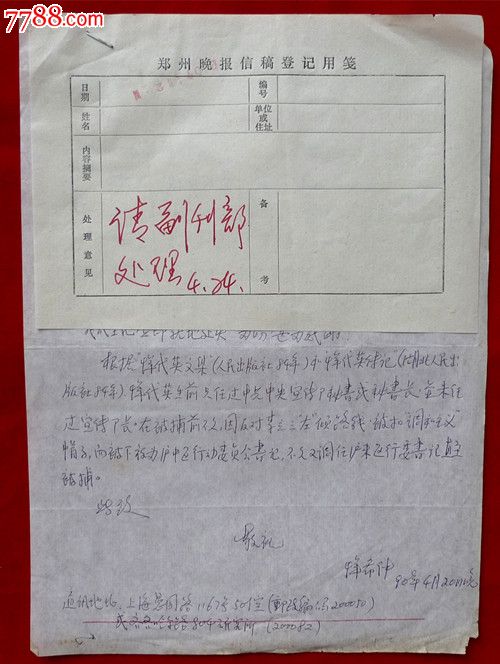 7788.com
郑州晚报信稿登记用笺
日期
编号
姓名
单位或住址
内容摘要
处理意见
请副刊部
处理 4.24.
备考
根据"恽代英文集"(人民出版社84年)和"恽代英传记"(湖北人民出
版社84年)恽代英生前只任过中共中央宣传部秘书或秘书长,并未任
过宣传部长。在被捕前不久,因反对李立三"左"倾路线,被扣"调和主义"
帽子,而被下放为沪中区行动委员会书记,不久又调任沪东区行委书记直至
被捕。
此致
敬礼
恽希仲
90年4月20日
通讯地址:上海 1167号50室(邮政编码200050)
(200082)